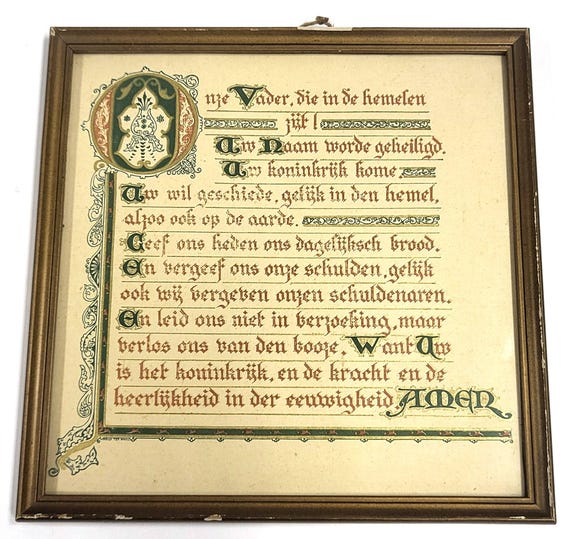 Onze Vader, die in de hemelen
zijt!
Uw Naam worde geheiligd.
Uw koninkrijk kome
Uw wil geschiede, gelijk in den hemel,
alzoo ook op de aarde.
Geef ons heden ons dagelijksch brood.
En vergeef ons onze schulden, gelijk
ook wij vergeven onzen schuldenaren.
En leid ons niet in verzoeking, maar
verlos ons van den booze. Want Uw
is het koninkrijk, en de kracht en de
heerlijkheid in der eeuwigheid AMEN